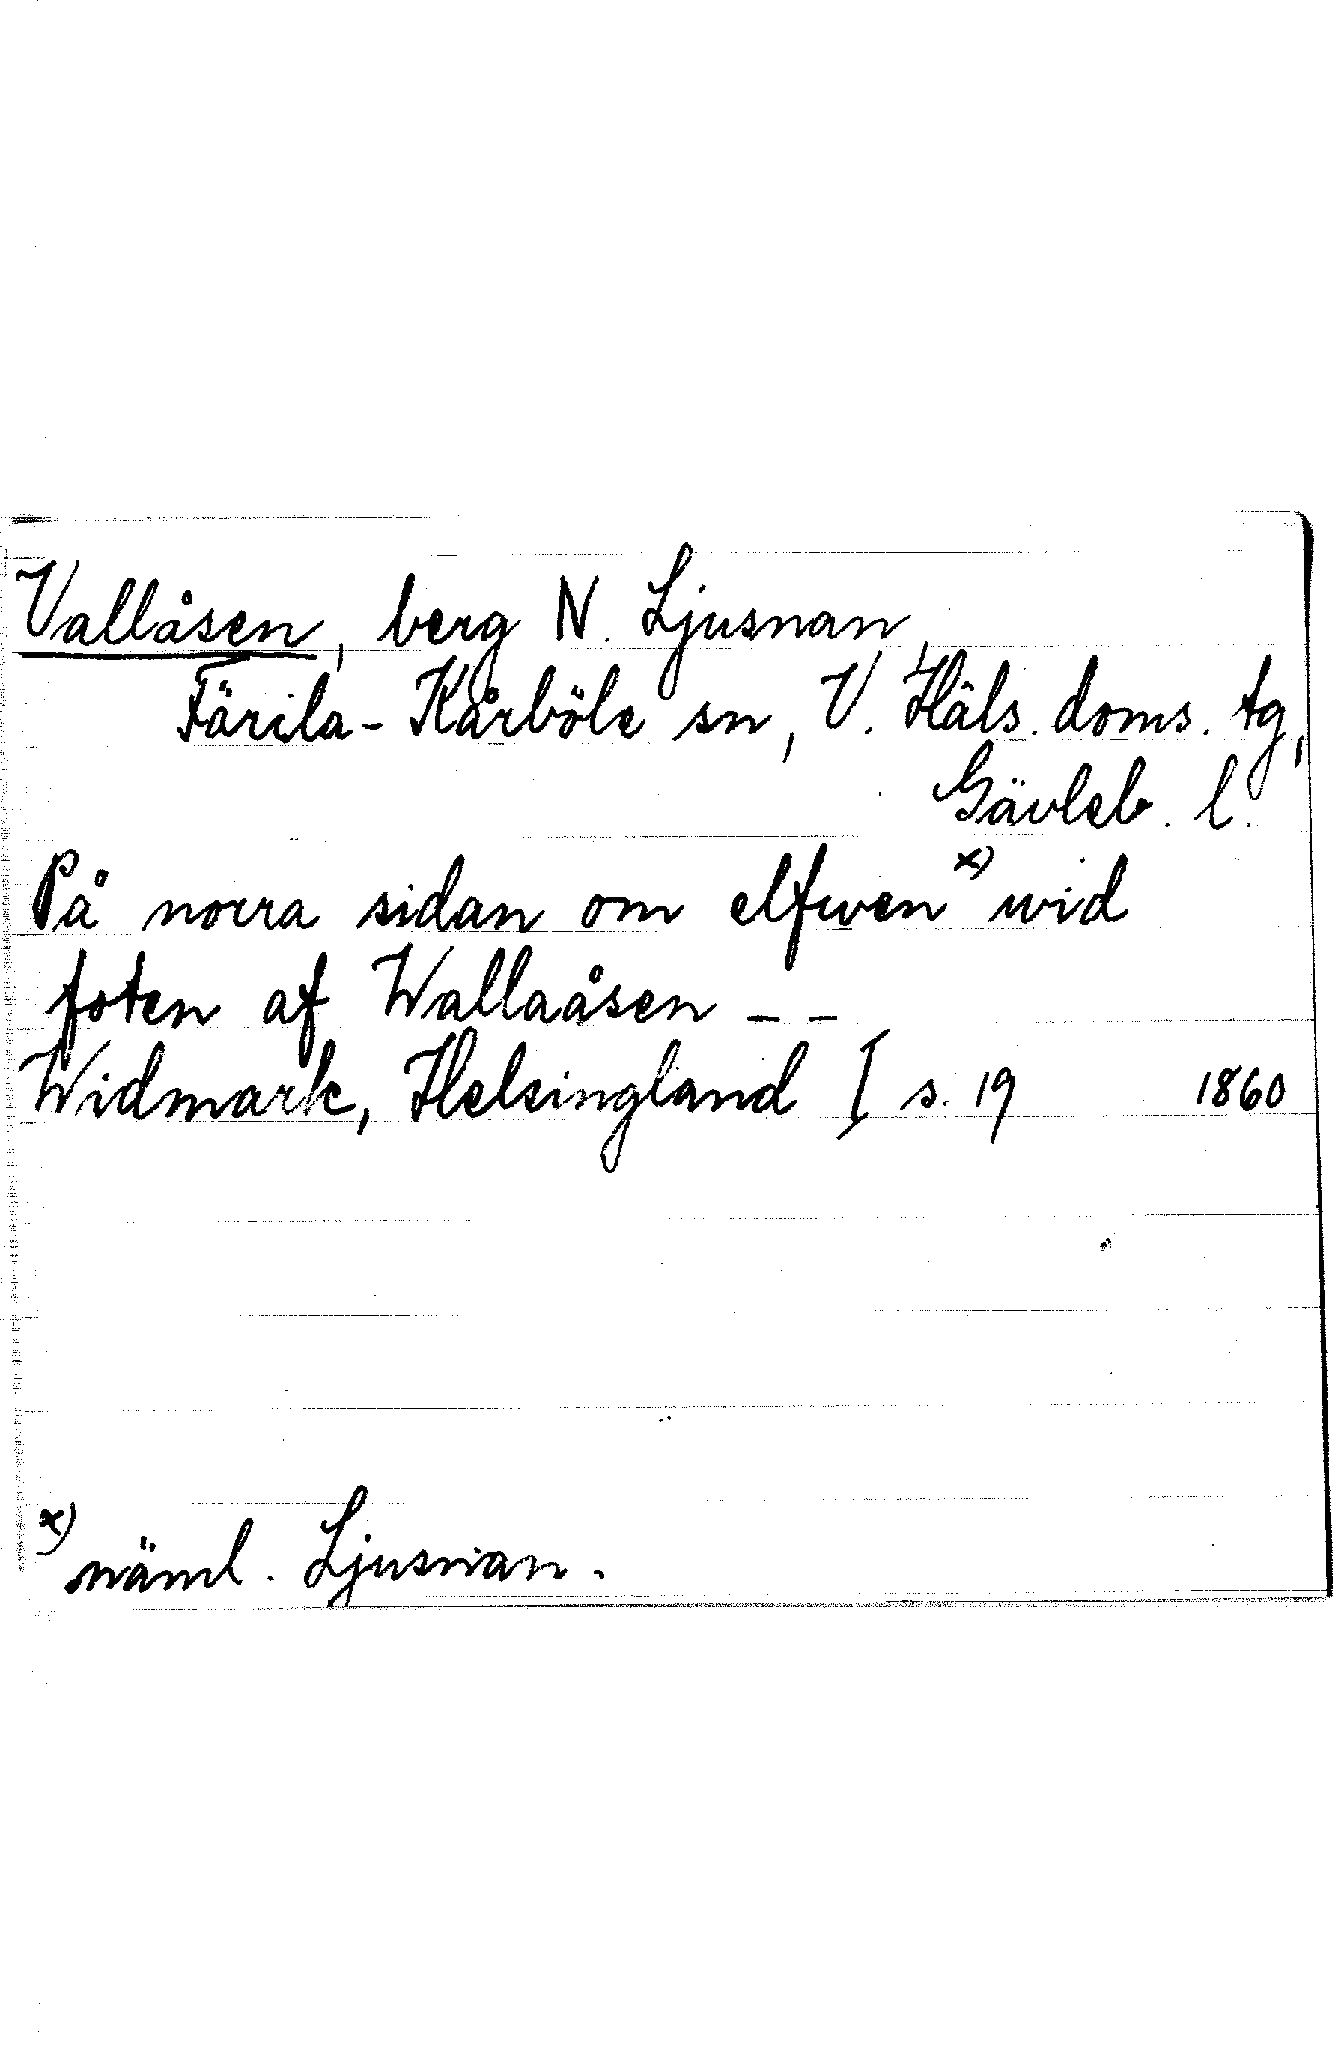 Vallåsen, berg N. Ljusnan,
Färila-Kårböle sn, V. Häls. doms. tg,
Gävleb. l.
På norra sidan om elfwen x) wid
foten af Wallaåsen – –
Widmark, Helsingland I s. 19 1860
x) näml. Ljusnan.